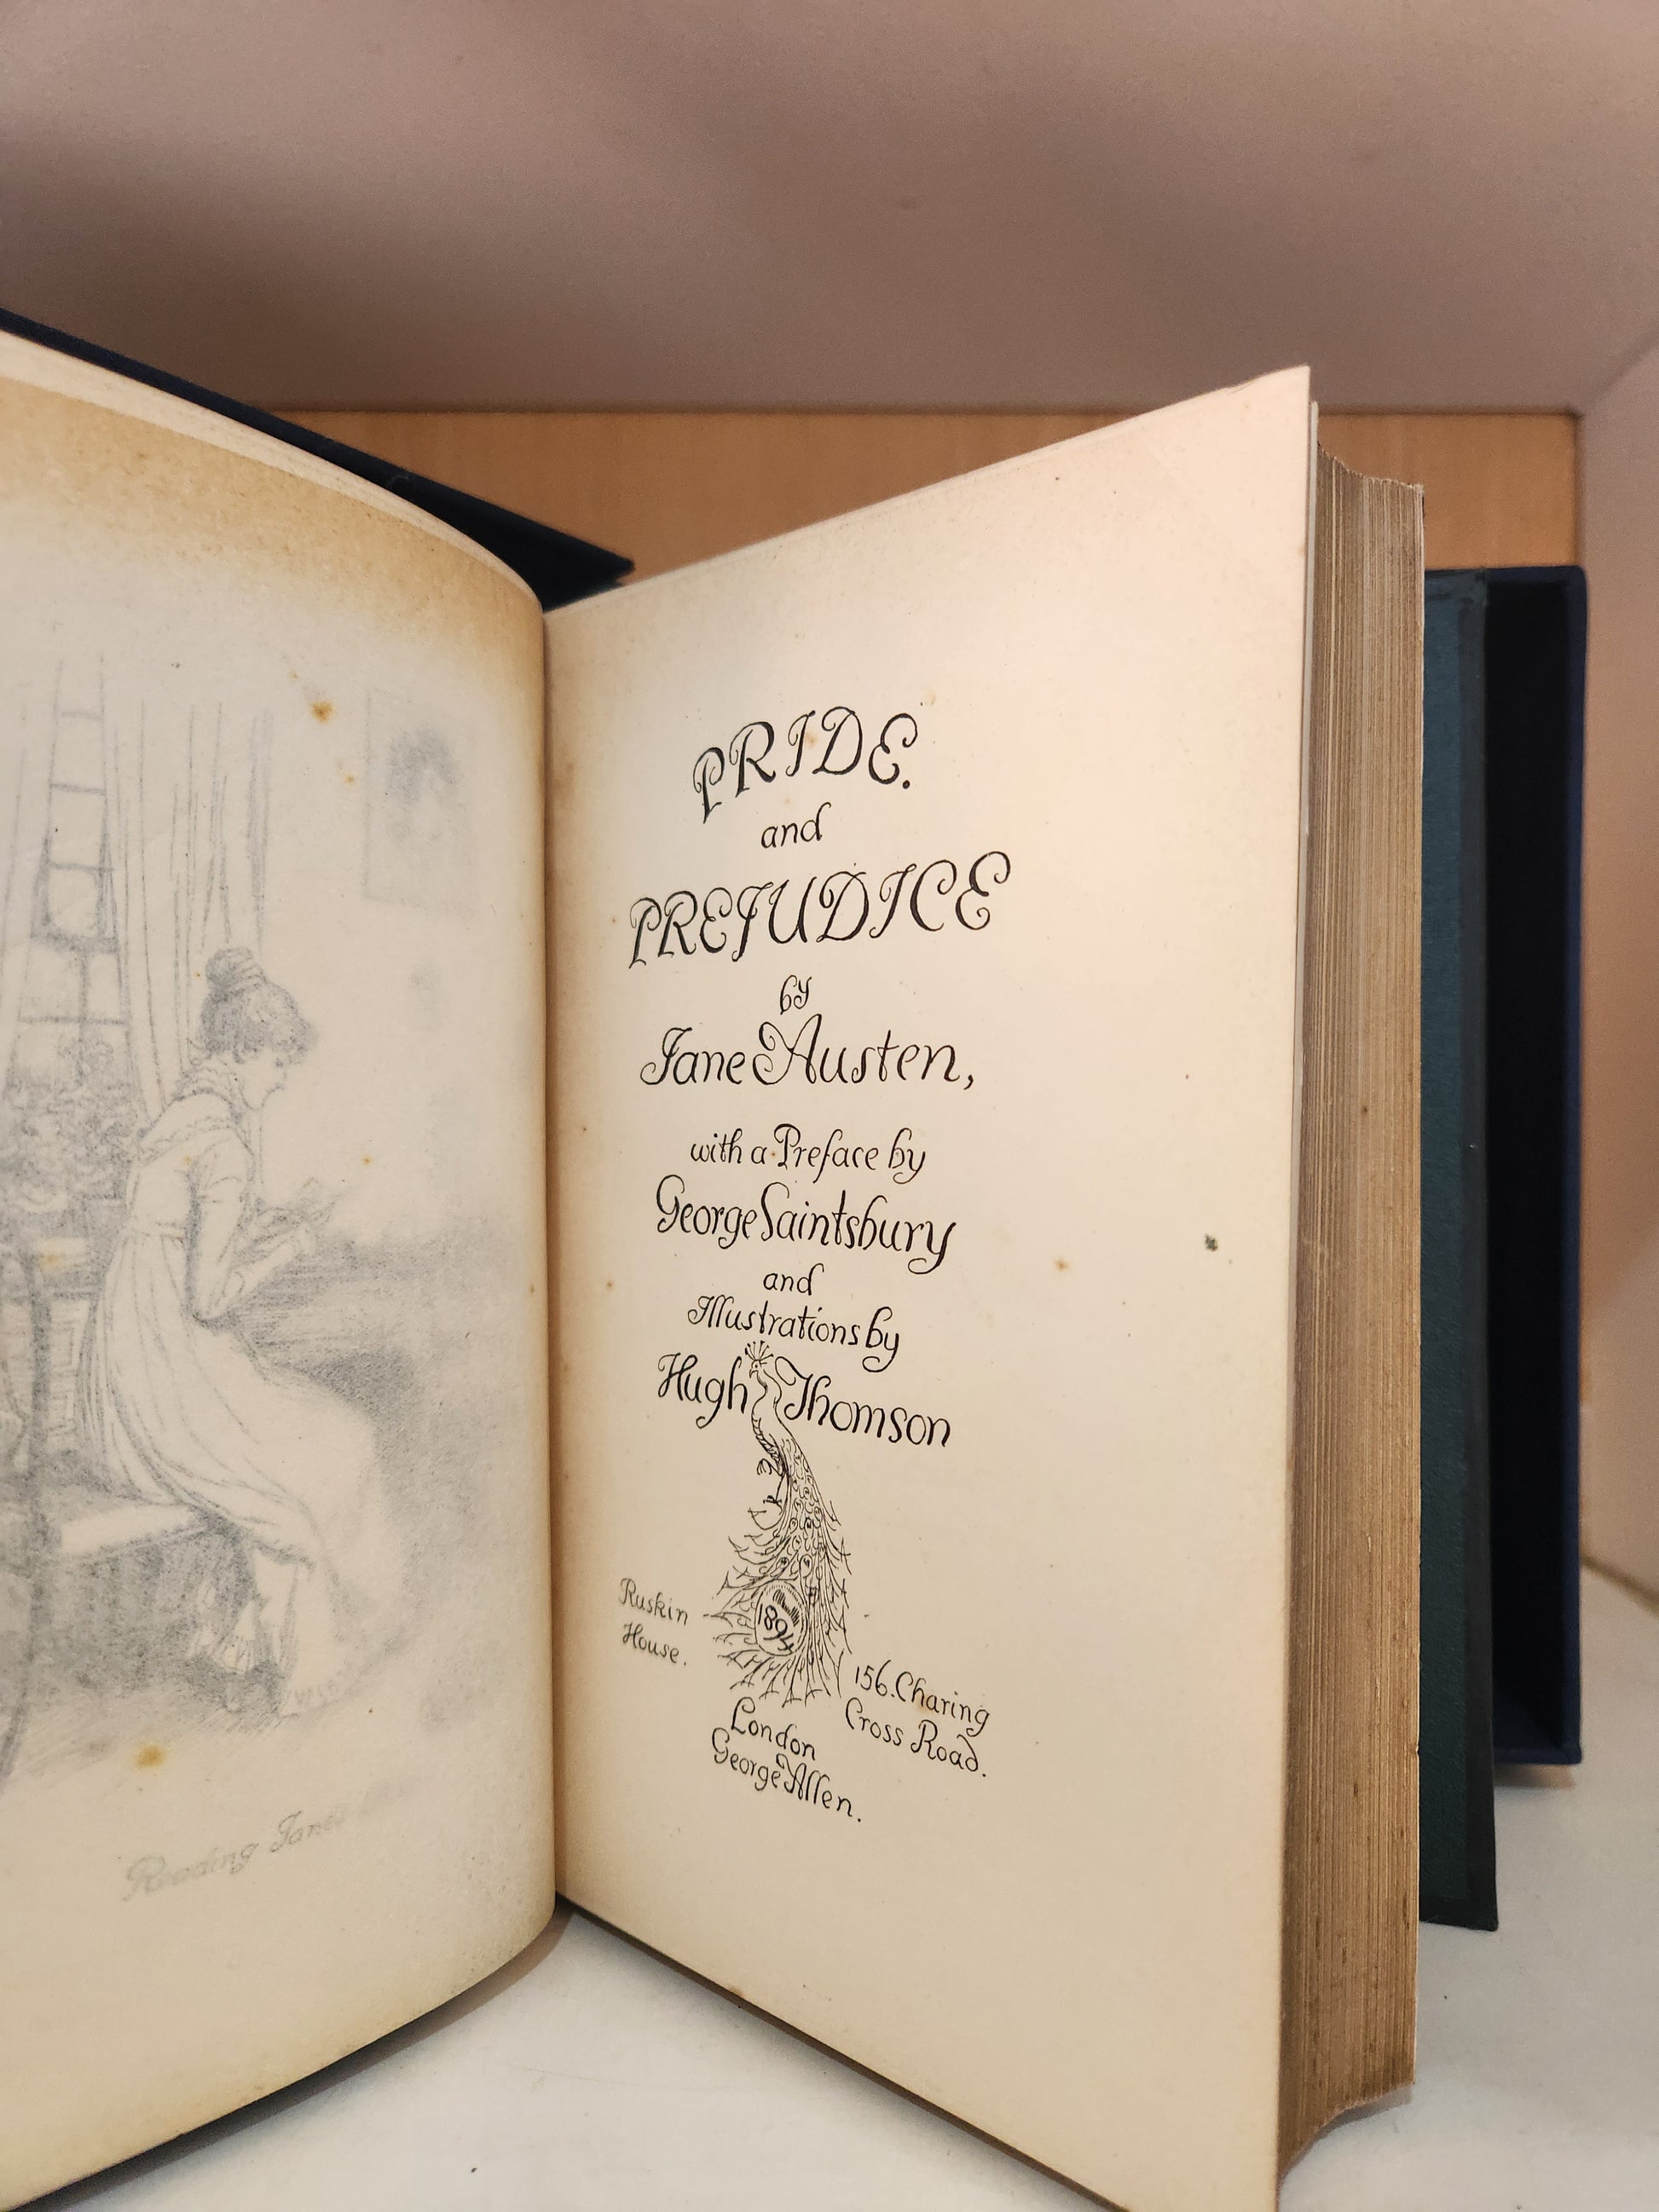 Reading Jane's
PRIDE.
and
PREJUDICE
by
Jane Austen,
with a Preface by
George Saintsbury
and
Illustrations by
Hugh Thomson
Ruskin
House.
1894
156. Charing
Cross Road.
London
George Allen.